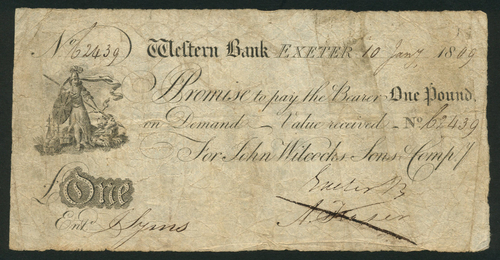 No. 62439 Western Bank EXETER 10 Jany. 1809
I Promise to pay the Bearer One Pound,
on Demand Value received No. 62439
For John Wilcocks Sons & Compy.
£One
Entd.